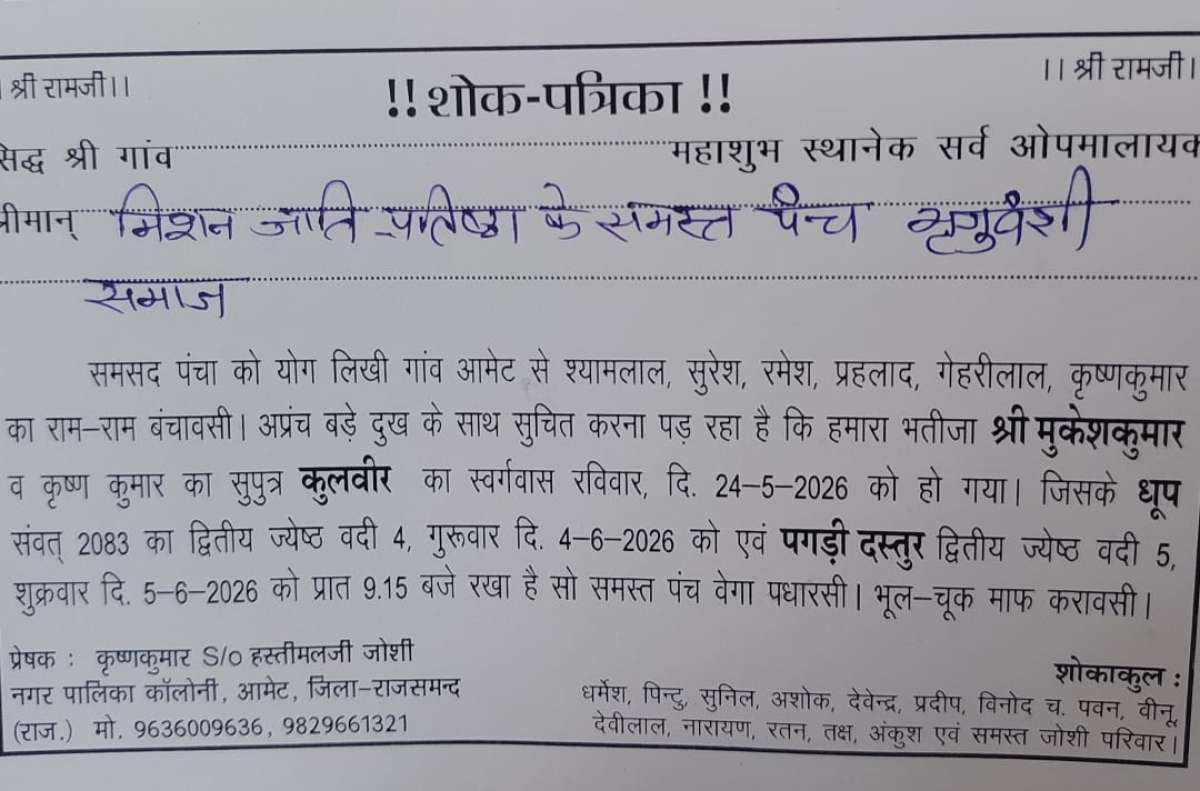 । श्री रामजी।।
!! शोक-पत्रिका !!
।। श्री रामजी।
सिद्ध श्री गांव महाशुभ स्थानेक सर्व ओपमालायक
श्रीमान् मिशन जाति प्रतिष्ठा के समस्त पंच भृगुवंशी
समाज
समसद पंचा को योग लिखी गांव आमेट से श्यामलाल, सुरेश, रमेश, प्रहलाद, गेहरीलाल, कृष्णकुमार
का राम–राम बंचावसी। अप्रंच बड़े दुख के साथ सुचित करना पड़ रहा है कि हमारा भतीजा श्री मुकेशकुमार
व कृष्ण कुमार का सुपुत्र कुलवीर का स्वर्गवास रविवार, दि. 24–5–2026 को हो गया। जिसके धूप
संवत् 2083 का द्वितीय ज्येष्ठ वदी 4, गुरूवार दि. 4–6–2026 को एवं पगड़ी दस्तुर द्वितीय ज्येष्ठ वदी 5,
शुक्रवार दि. 5–6–2026 को प्रात 9.15 बजे रखा है सो समस्त पंच वेगा पधारसी। भूल–चूक माफ करावसी।
प्रेषक : कृष्णकुमार S/o हस्तीमलजी जोशी
नगर पालिका कॉलोनी, आमेट, जिला–राजसमन्द
(राज.) मो. 9636009636, 9829661321
शोकाकुल :
धर्मेश, पिन्टु, सुनिल, अशोक, देवेन्द्र, प्रदीप, विनोद च. पवन, वीनू,
देवीलाल, नारायण, रतन, तक्ष, अंकुश एवं समस्त जोशी परिवार।